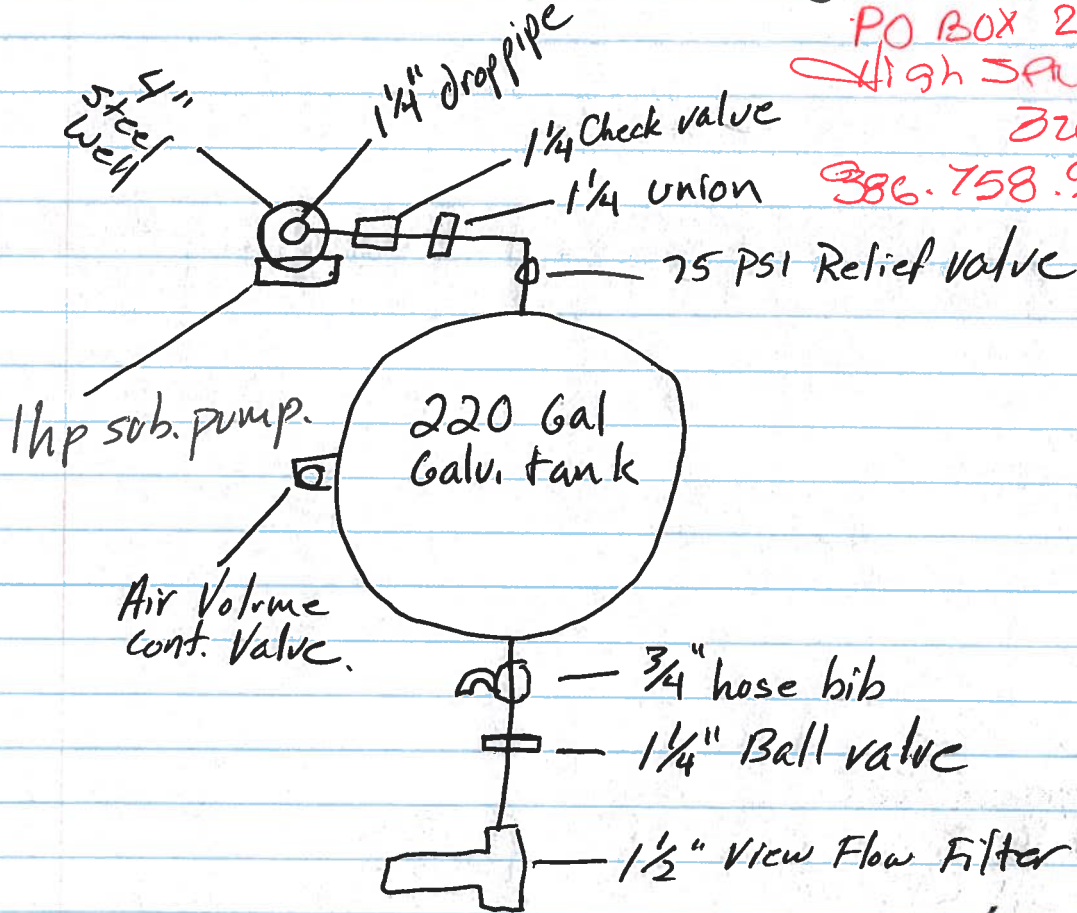 PO BOX 2
High Spr
32
386.758.9
4"
steel
well
1¼" droppipe
1¼ Check valve
1¼ union
75 PSI Relief valve
1hp sub. pump.
220 Gal
Galv. tank
Air Volume
Cont. Valve.
¾" hose bib
1¼" Ball valve
1½" View Flow Filter